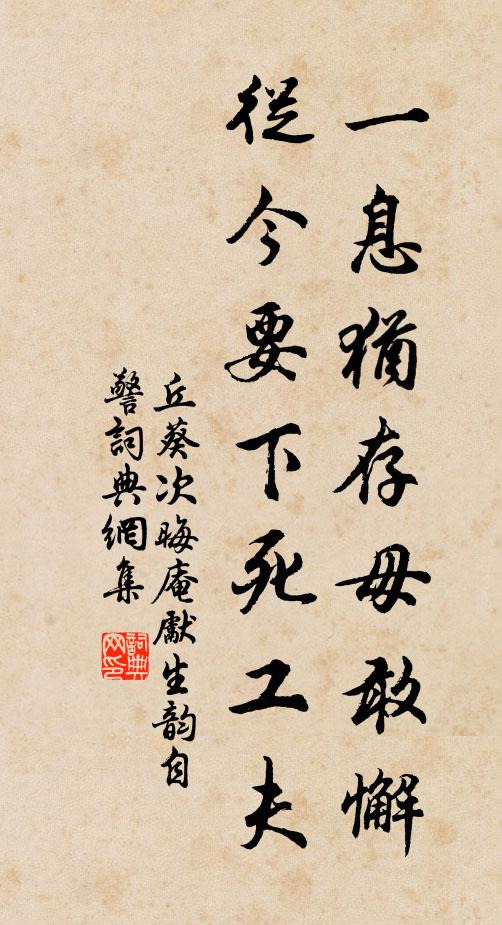 一息猶存毋敢懈
從今要下死工夫
丘葵次晦庵獻生韵自
警詞典網集
詞典
网印